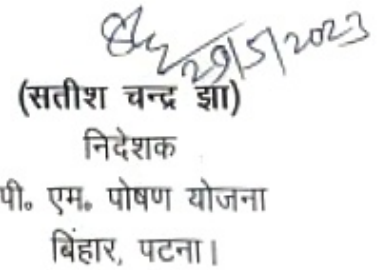 29/5/2023
(सतीश चन्द्र झा)
निदेशक
पी० एम० पोषण योजना
बिहार, पटना।